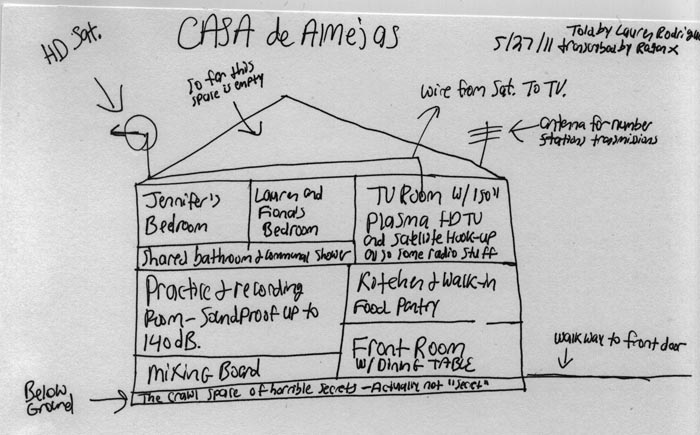 CASA de Almejas
Told by Lauren Rodriguez
5/27/11 transcribed by
HD Sat.
So far this
space is empty
wire from Sat. To TV.
antenna for number
stations transmissions
Jennifer's
Bedroom
Lauren and
Fiona's
Bedroom
TV Room w/ 150"
Plasma HDTV
and satellite Hook-up
also some radio stuff
Shared bathroom & communal shower
Practice & recording
Room - Soundproof up to
140 dB.
Kitchen & walk-in
Food Pantry
Mixing Board
Front Room
w/ Dining TABLE
walkway to front door
Below
Ground
The crawl space of horrible secrets - Actually not "secret"